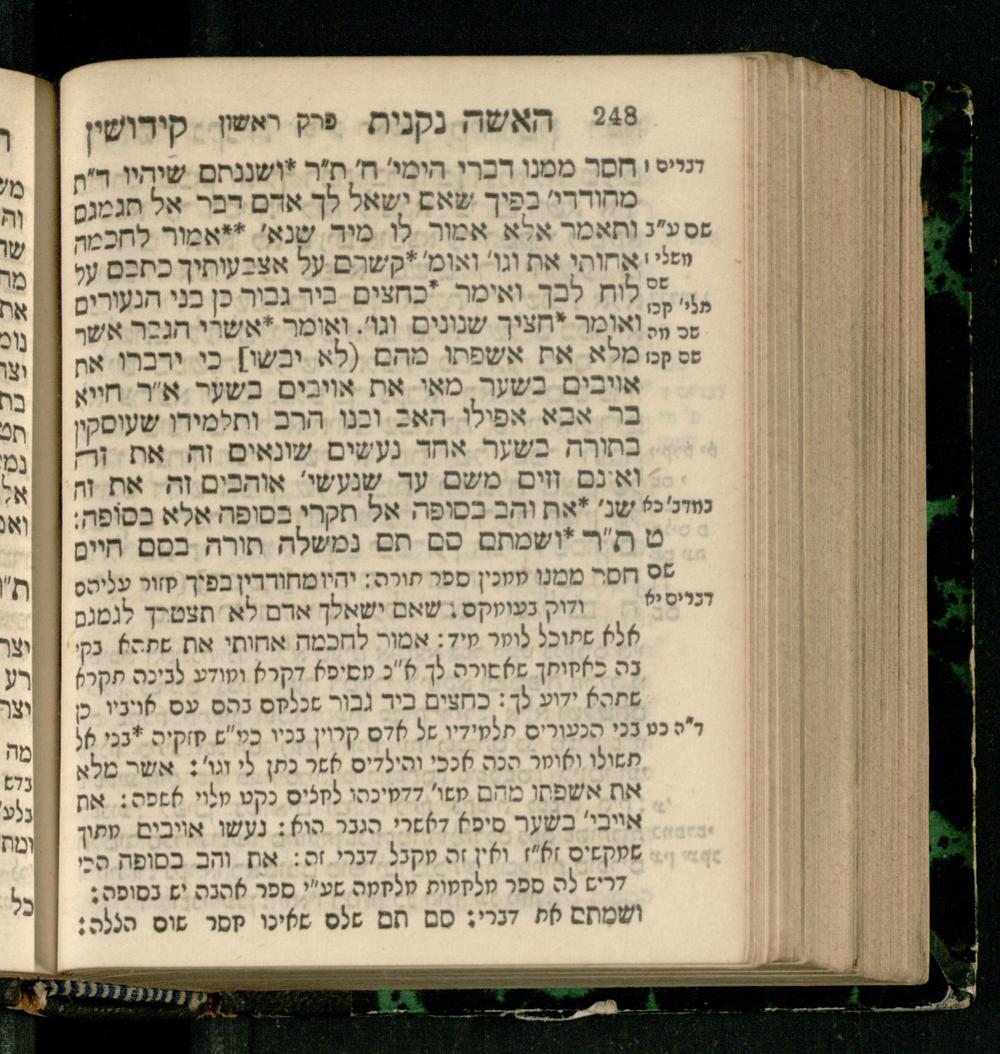 248 האשה נקנית פרק ראשון קידושין
דברים ו חסר ממנו דברי הימי׳ ח׳ ת״ר *ושננתם שיהיו ד״ת
מחודדי׳ בפיך שאם ישאל לך אדם דבר אל תגמגם
שם ע״ב ותאמר אלא אמור לו מיד שנא׳ **אמור לחכמה
משלי ז אחותי את וגו׳ ואומ׳ *קשרם על אצבעותיך כתבם על
שם לוח לבך ואימר *כחצים ביד גבור כן בני הנעורים
תלי׳ קכז ואומר *חציך שנונים וגו׳. ואומר *אשרי הגבר אשר
שם מה
שם קכז מלא את אשפתו מהם (לא יבשו] כי ידברו את
אויבים בשער מאי את אויבים בשער א״ר חייא
בר אבא אפילו האב ובנו הרב ותלמידו שעוסקין
בתורה בשער אחד נעשים שונאים זה את זה
ואינם זזים משם עד שנעשי׳ אוהבים זה את זה
במדב׳ כא שנ׳ *את והב בסופה אל תקרי בסופה אלא בסופה:
ט ת״ר *ושמתם סם תם נמשלה תורה בסם חיים
שם חסר ממנו ממנין ספר תורה: יהיו מחודדין בפיך חזור עליהם
דברים יא ודוק בעומקם: שאם ישאלך אדם לא תצטרך לגמגם
אלא שתוכל לומר מיד: אמור לחכמה אחותי את שתהא בקי
בה כאחותך שאסורה לך א״נ מסיפא דקרא ומודע לבינה תקרא
שתהא ידוע לך: כחצים ביד גבור שנלחם בהם עם אויביו כן
ד״ה כט בני הנעורים תלמידיו של אדם קרוין בניו כמ״ש חזקיה *בני אל
תשולו ואומר הנה אנכי והילדים אשר נתן לי וגו׳: אשר מלא
את אשפתו מהם משו׳ דדמינהו לחצים נקט מלוי אשפה: את
אויבי׳ בשער סיפא דאשרי הגבר הוא: נעשו אויבים מתוך
שמקשים זא״ז ואין זה מקבל דברי זה: את והב בסופה הכי
דריש לה ספר מלחמות מלחמה שע״י ספר אהבה יש בסופה:
ושמתם את דברי: סם תם שלם שאינו חסר שום הללה: